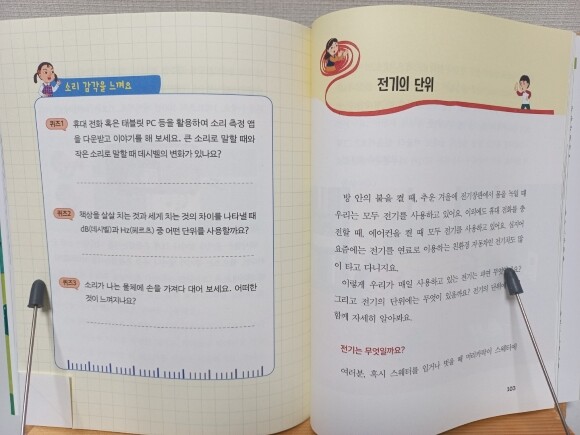 소리 감각을 느껴요
퀴즈1 휴대 전화 혹은 태블릿 PC 등을 활용하여 소리 측정 앱
을 다운받고 이야기를 해 보세요. 큰 소리로 말할 때와
작은 소리로 말할 때 데시벨의 변화가 있나요?
퀴즈2 책상을 살살 치는 것과 세게 치는 것의 차이를 나타낼 때
dB(데시벨)과 Hz(헤르츠) 중 어떤 단위를 사용할까요?
퀴즈3 소리가 나는 물체에 손을 가져다 대어 보세요. 어떠한
것이 느껴지나요?
전기의 단위
방 안의 불을 켤 때, 추운 겨울에 전기장판에서 몸을 녹일 때
우리는 모두 전기를 사용하고 있어요. 이외에도 휴대 전화를 충
전할 때, 에어컨을 켤 때 모두 전기를 사용하고 있어요. 심지어
요즘에는 전기를 연료로 이용하는 친환경 자동차인 전기차도 많
이 타고 다니지요.
이렇게 우리가 매일 사용하고 있는 전기는 과연
그리고 전기의 단위에는 무엇이 있을까요? 전기의
함께 자세히 알아봐요.
전기는 무엇일까요?
여러분, 혹시 스웨터를 입거나 벗을 때 머리카락이 스웨터에
103